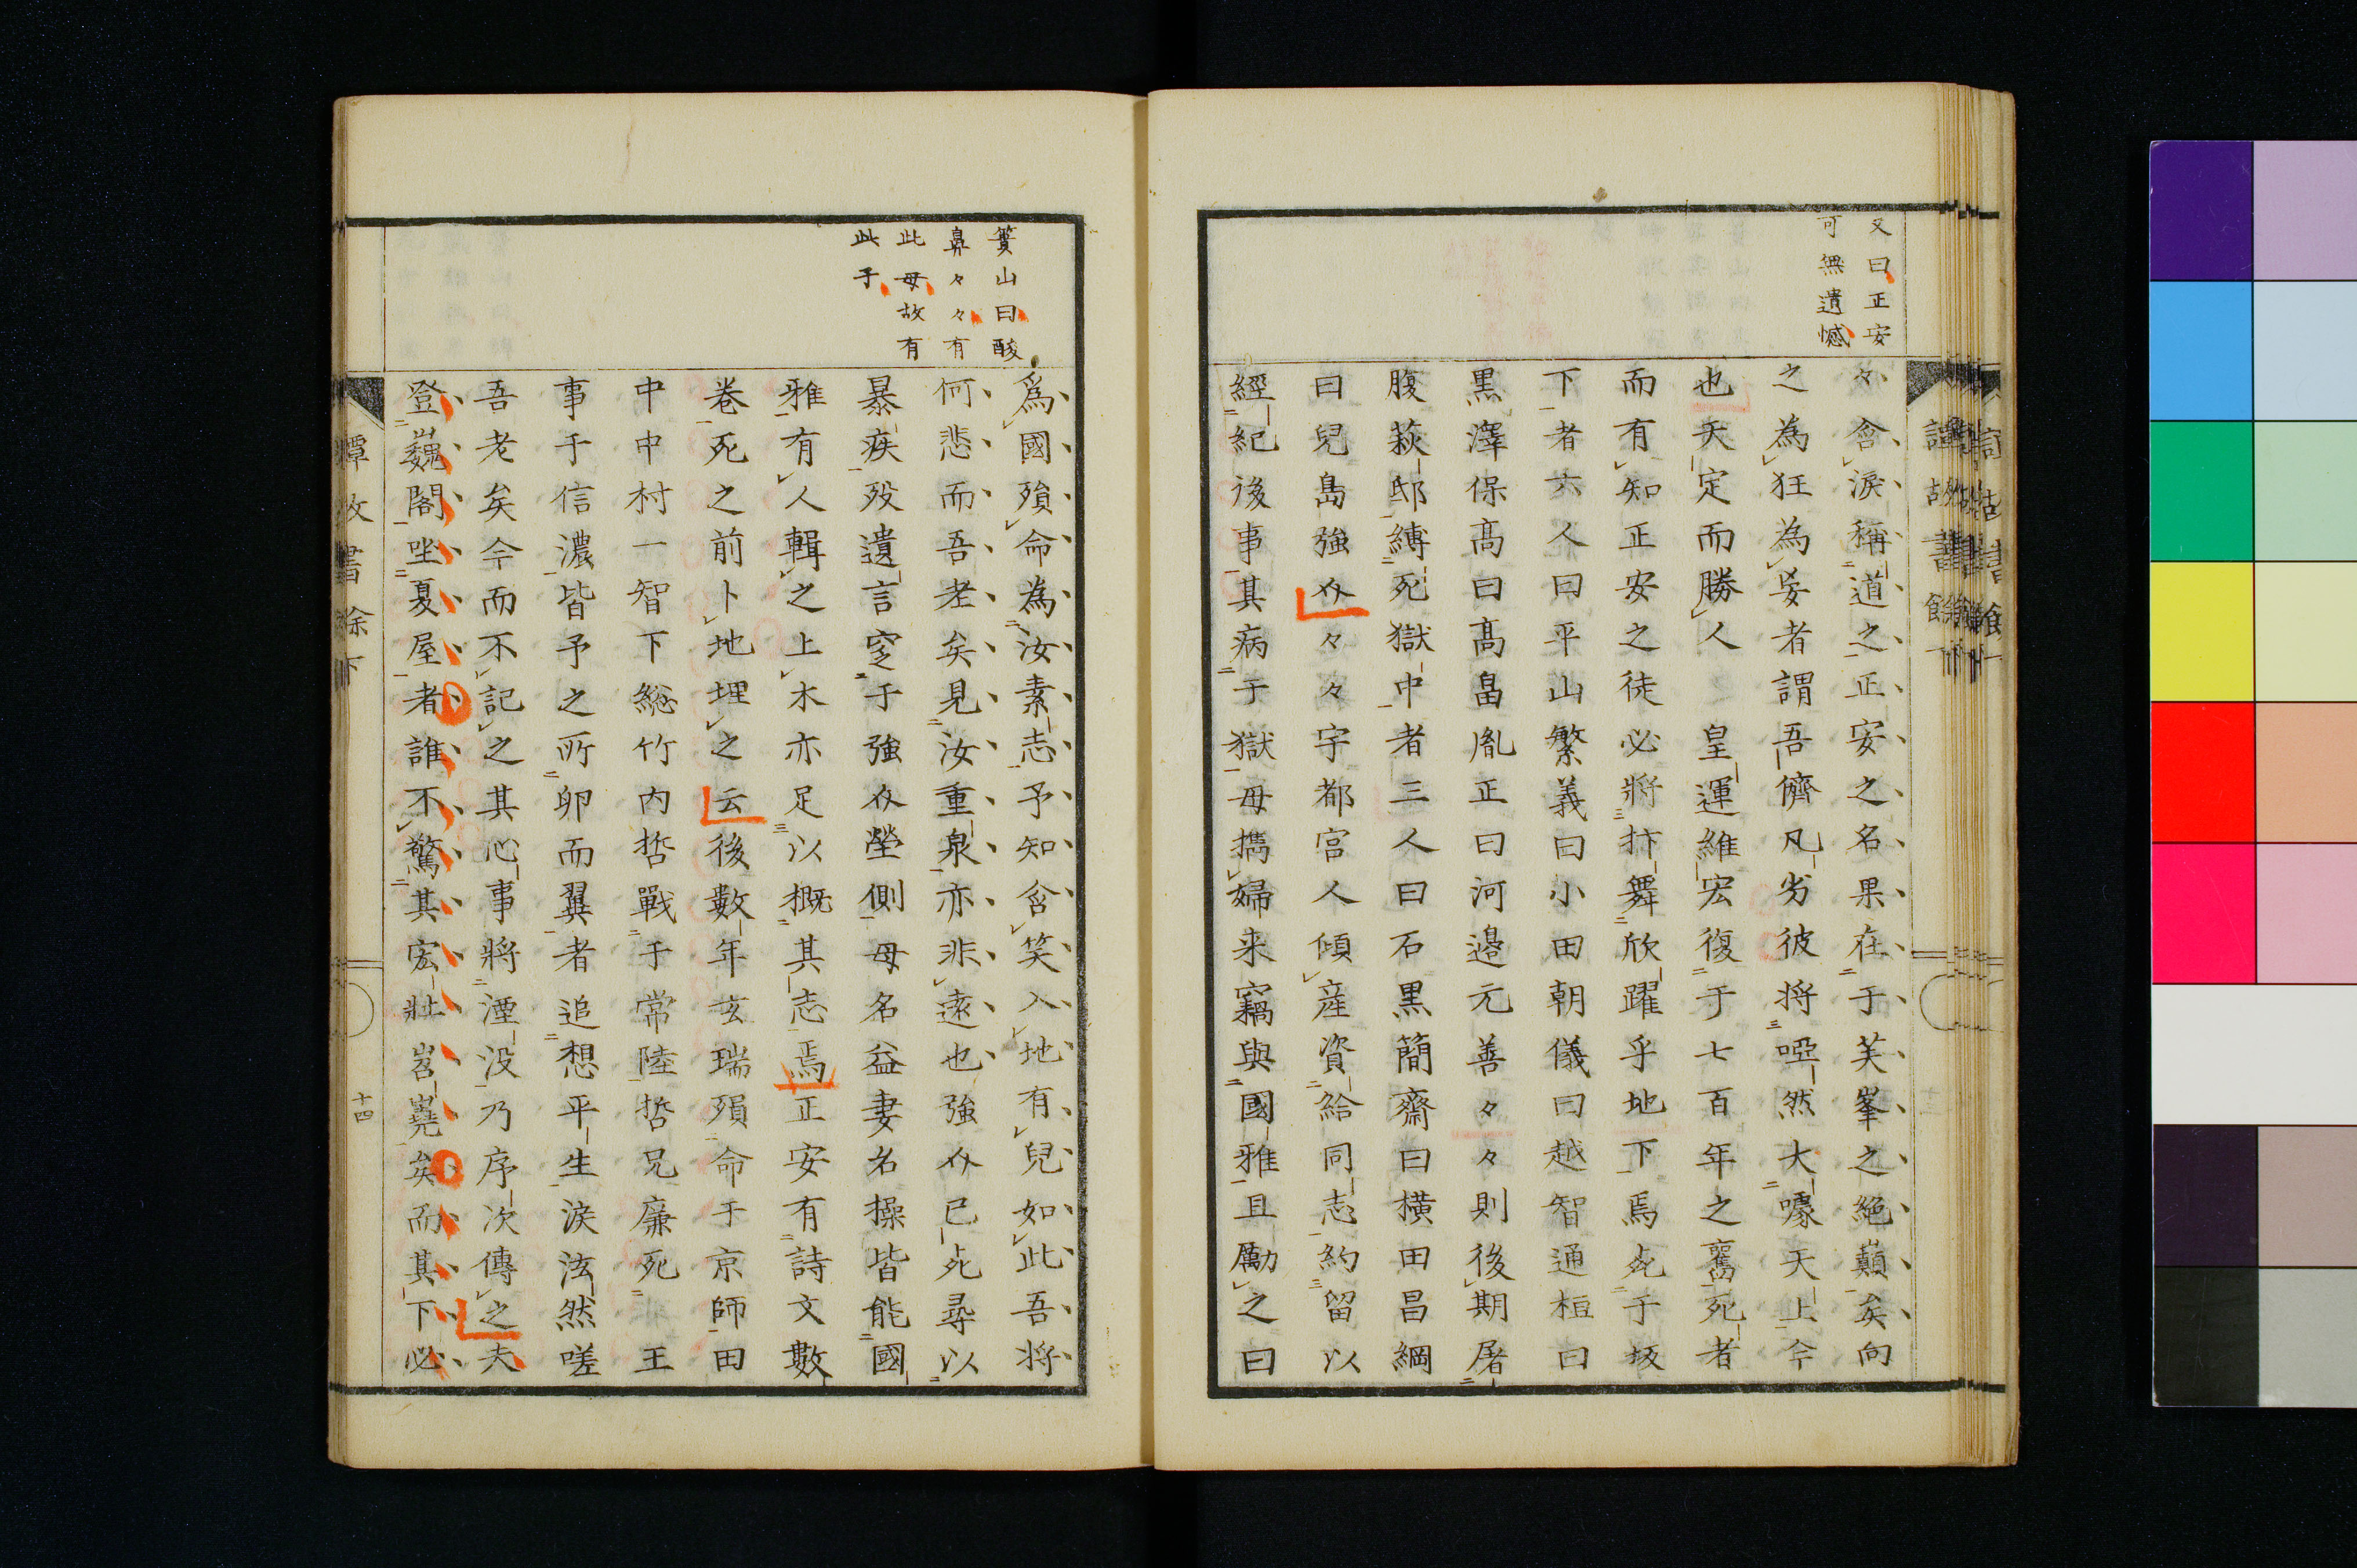 又曰正安
可無遺憾
々含淚稱道之正安之名果在于芙峯之絶巓矣向
之為狂為妄者謂吾儕凡劣彼将啞然大噱天上今
也天定而勝人　皇運維宏復于七百年之舊死者
而有知正安之徒必將抃舞欣躍乎地下焉死于坂
下者六人曰平山繁義曰小田朝儀曰越智通桓曰
黒澤保髙曰髙畠胤正曰河邉元善々々則後期屠
腹萩邸縛死獄中者三人曰石黒簡齋曰横田昌綱
曰兒島強介々々宇都宮人傾産資給同志約留以
經紀後事其病于獄母携婦来竊與國雅且勵之曰
簣山曰酸
鼻々々有
此母故有
此子
爲國殞命為汝素志予知含笑入地有兒如此吾将
何悲而吾老矣見汝重泉亦非遠也強介已死尋以
暴疾歿遺言窆于強介塋側母名益妻名操皆能國
雅有人輯之上木亦足以概其志焉正安有詩文數
巻死之前卜地埋之云後數年玄瑞殞命于京師田
中中村一智下総竹内哲戰于常陸哲兄廉死王
事于信濃皆予之所卵而翼者追想平生淚泫然嗟
吾老矣今而不記之其心事將湮没乃序次傳之夫
登巍閣坐夏屋者誰不驚其宏壯岧嶤矣而其下必
譚故書餘下
十四